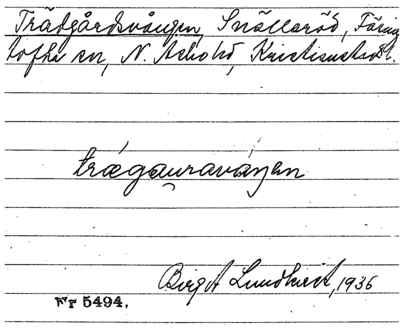 Trädgårdsvången, Snälleröd, Färing
tofta sn, N. Åsbo hd, Kristianstads l.
trǽgau̯raváŋen
Birgit Lundkvist, 1936
Nr 5494.